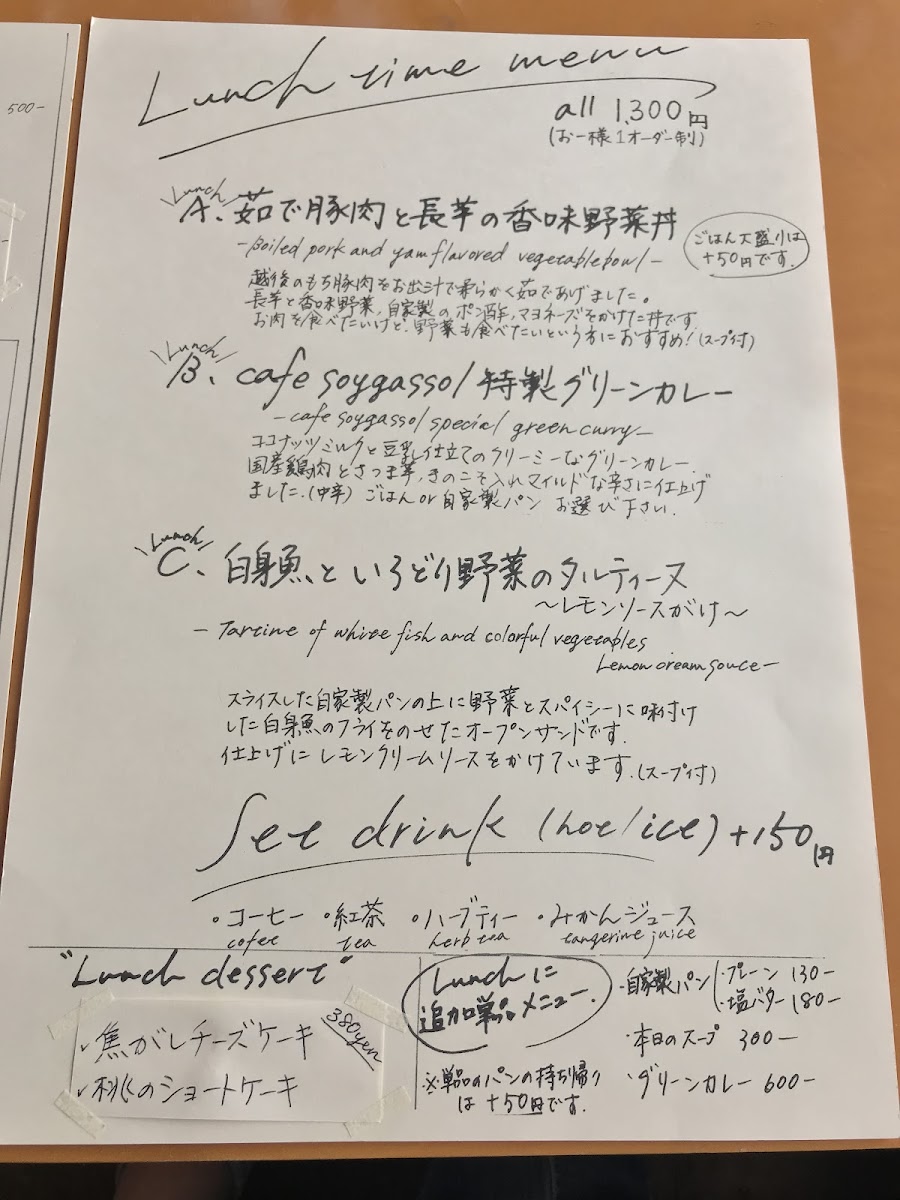 500-
Lunch time menu
all 1,300円
(お一様1オーダー制)
Lunch
A、茹で豚肉と長芋の香味野菜丼
-Boiled pork and yam flavored vegetable bowl-
ごはん大盛りは
+50円です.
越後のもち豚肉をお出汁で柔らかく茹であげました。
長芋と香味野菜,自家製のポン酢,マヨネーズをかけた丼です.
お肉を食べたいけど、野菜も食べたいという方におすすめ!(スープ付)
Lunch
B、cafe soygassol 特製グリーンカレー
-cafe soygassol special green curry-
ココナッツミルクと豆乳仕立てのクリーミーなグリーンカレー.
国産鶏肉とさつま芋,きのこを入れマイルドな辛さに仕上げ
ました.(中辛) ごはんor自家製パン お選び下さい.
Lunch
C、白身魚といろどり野菜のタルティーヌ
~レモンソースがけ~
- Tartine of white fish and colorful vegetables
Lemon cream souce-
スライスした自家製パンの上に野菜とスパイシーに味付け
した白身魚のフライをのせたオープンサンドです.
仕上げにレモンクリームソースをかけています.(スープ付)
Set drink (hot/ice) +150円
・コーヒー ・紅茶 ・ハーブティー ・みかんジュース
cofee tea herb tea tangerine juice
"Lunch dessert"
380yen
✓焦がしチーズケーキ
✓桃のショートケーキ
Lunchに
追加単品メニュー.
※単品のパンの持ち帰り
は+50円です.
・自家製パン ・プレーン 130-
・塩バター 180-
・本日のスープ 300-
・グリーンカレー 600-